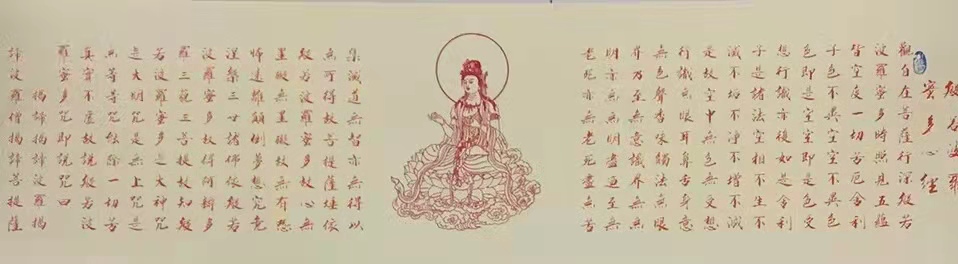 般若波羅
蜜多心經
觀自在菩薩行深般若
波羅蜜多時照見五蘊
皆空度一切苦厄舍利
子色不異空空不異色
色即是空空即是色受
想行識亦復如是舍利
子是諸法空相不生不
滅不垢不淨不增不減
是故空中無色無受想
行識無眼耳鼻舌身意
無色聲香味觸法無眼
界乃至無意識界無無
明亦無無明盡乃至無
老死亦無老死盡無苦
集滅道無智亦無得以
無所得故菩提薩埵依
般若波羅蜜多故心無
罣礙無罣礙故無有恐
怖遠離顛倒夢想究竟
涅槃三世諸佛依般若
波羅蜜多故得阿耨多
羅三藐三菩提故知般
若波羅蜜多是大神咒
是大明咒是無上咒是
無等等咒能除一切苦
真實不虛故說般若波
羅蜜多咒即說咒曰
揭諦揭諦波羅揭
諦波羅僧揭諦菩提薩